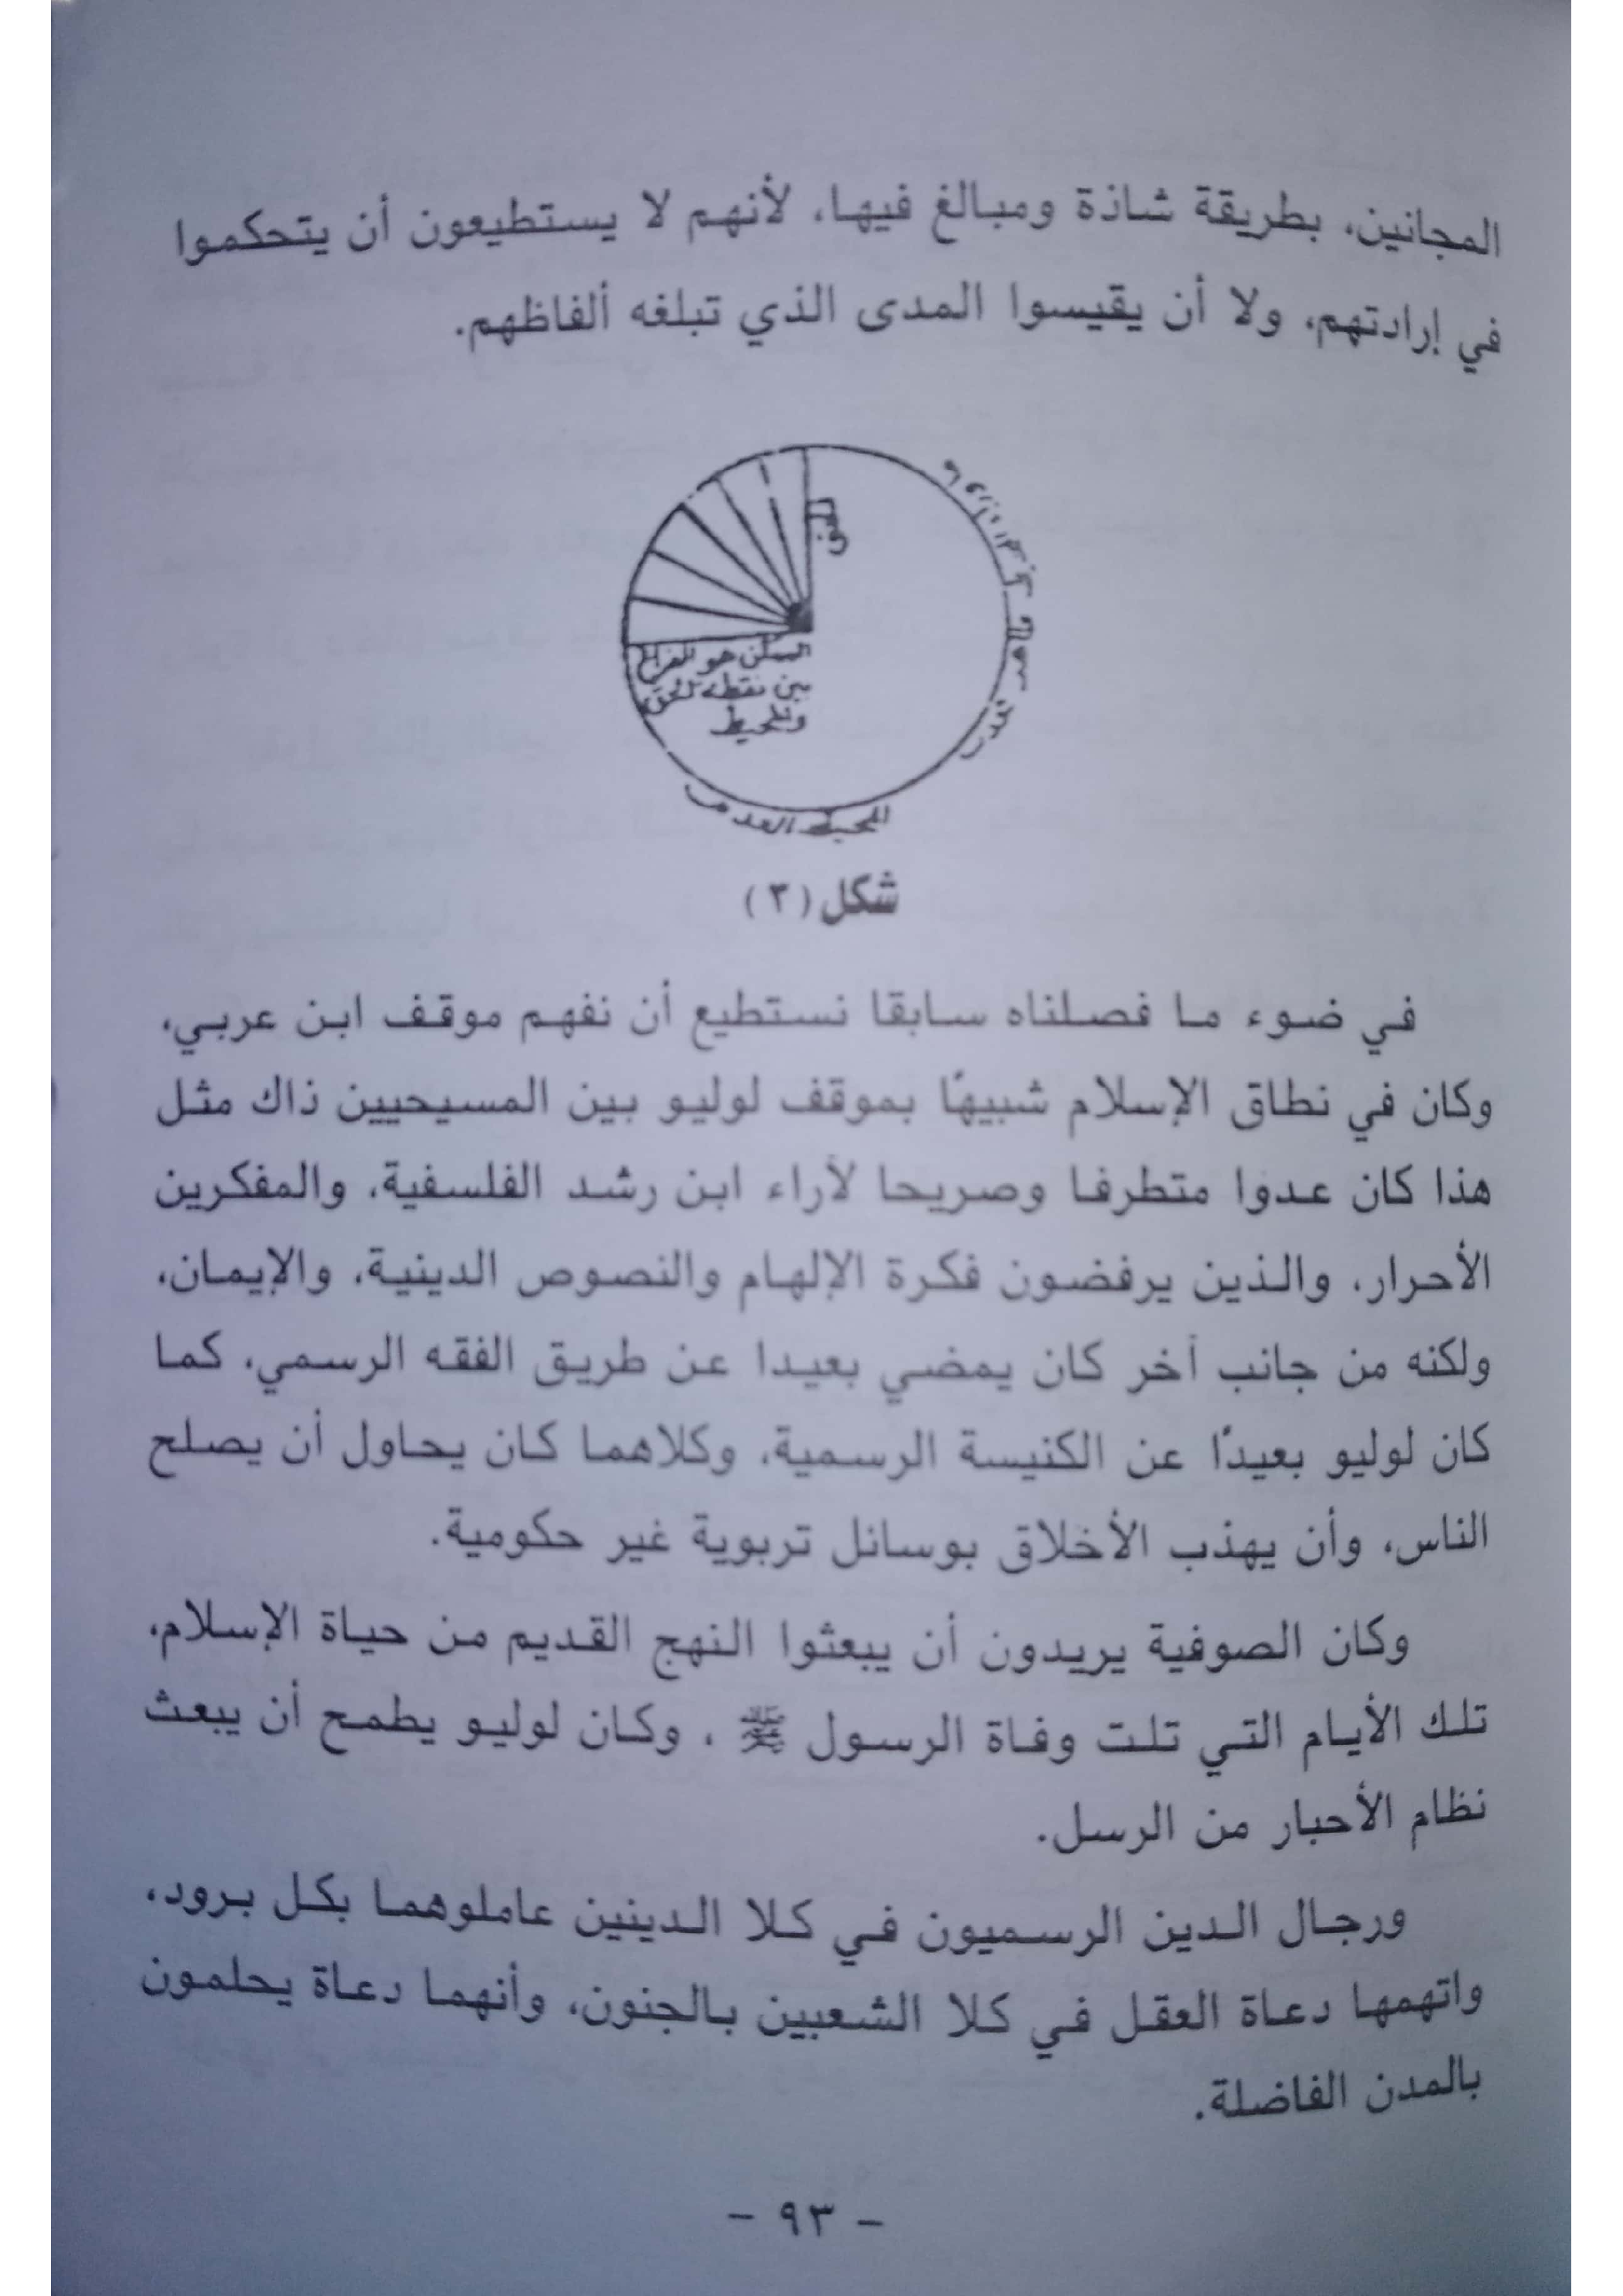 المجانين، بطريقة شاذة ومبالغ فيها، لأنهم لا يستطيعون أن يتحكموا
في إرادتهم، ولا أن يقيسوا المدى الذي تبلغه ألفاظهم.
الحق
هو الفراغ
بين نقطة الحق
والمحيط
المحيط العدمي
شكل (٣)
في ضوء ما فصلناه سابقا نستطيع أن نفهم موقف ابن عربي،
وكان في نطاق الإسلام شبيهًا بموقف لوليو بين المسيحيين ذاك مثل
هذا كان عدوا متطرفا وصريحا لآراء ابن رشد الفلسفية، والمفكرين
الأحرار، والذين يرفضون فكرة الإلهام والنصوص الدينية، والإيمان،
ولكنه من جانب آخر كان يمضي بعيدا عن طريق الفقه الرسمي، كما
كان لوليو بعيدًا عن الكنيسة الرسمية، وكلاهما كان يحاول أن يصلح
الناس، وأن يهذب الأخلاق بوسائل تربوية غير حكومية.
وكان الصوفية يريدون أن يبعثوا النهج القديم من حياة الإسلام،
تلك الأيام التي تلت وفاة الرسول ﷺ ، وكان لوليو يطمح أن يبعث
نظام الأحبار من الرسل.
ورجال الدين الرسميون في كلا الدينين عاملوهما بكل برود،
واتهمها دعاة العقل في كلا الشعبين بالجنون، وأنهما دعاة يحلمون
بالمدن الفاضلة.
- ٩٣ -